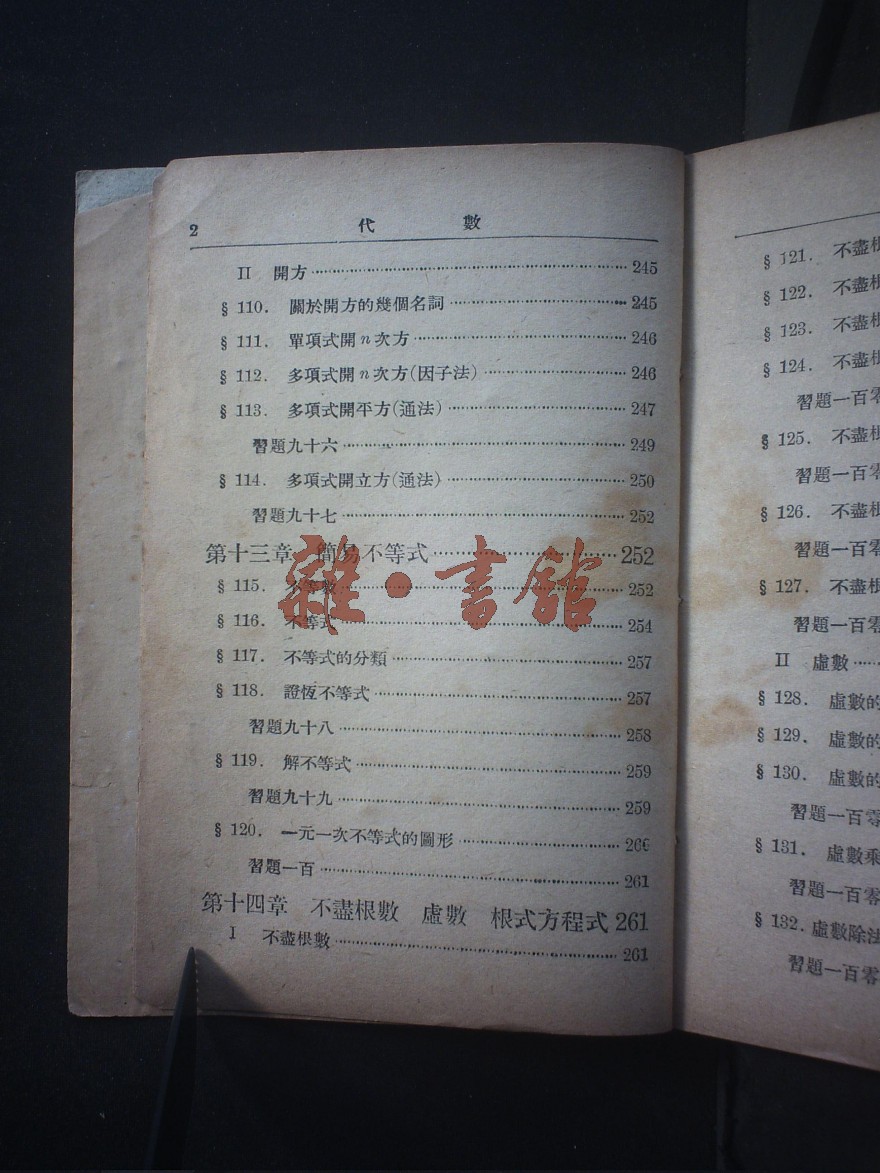 2 代 數
II 開方 245
§ 110. 關於開方的幾個名詞 245
§ 111. 單項式開n次方 246
§ 112. 多項式開n次方(因子法) 246
§ 113. 多項式開平方(通法) 247
習題九十六 249
§ 114. 多項式開立方(通法) 250
習題九十七 252
第十三章 簡易不等式 252
§ 115. 不等數 252
§ 116. 不等式 254
§ 117. 不等式的分類 257
§ 118. 證恆不等式 257
習題九十八 258
§ 119. 解不等式 259
習題九十九 259
§ 120. 一元一次不等式的圖形 260
習題一百 261
第十四章 不盡根數 虛數 根式方程式 261
I 不盡根數 261
雜·書館
§ 121. 不盡根
§ 122. 不盡根
§ 123. 不盡根
§ 124. 不盡根
習題一百零
§ 125. 不盡根
習題一百零
§ 126. 不盡根
習題一百零
§ 127. 不盡根
習題一百零
II 虛數
§ 128. 虛數的
§ 129. 虛數的
§ 130. 虛數的
習題一百零
§ 131. 虛數乘
習題一百零
§ 132. 虛數除法
習題一百零